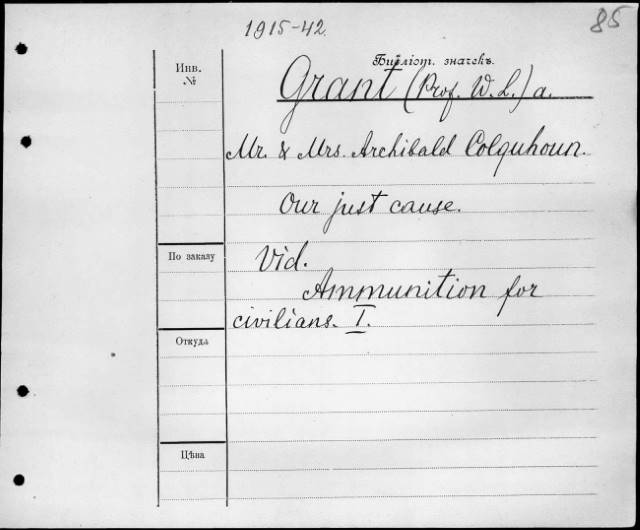 1915-42.
85
Инв.
№
Библіот. значекъ.
Grant (Prof. W. L.) a.
Mr. & Mrs. Archibald Colquhoun.
Our just cause.
По заказу
Vid.
Ammunition for
civilians. I.
Откуда
Цѣна